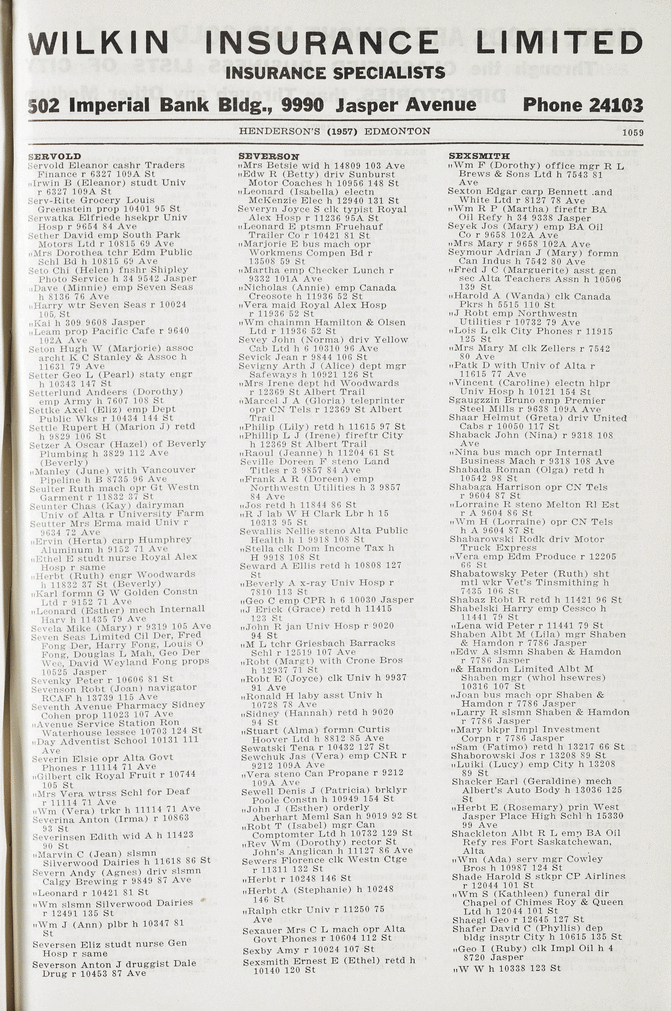 WILKIN INSURANCE LIMITED
INSURANCE SPECIALISTS
502 Imperial Bank Bldg., 9990 Jasper Avenue Phone 24103
HENDERSON'S (1957) EDMONTON 1059
SERVOLD
Servold Eleanor cashr Traders
Finance r 6327 109A St
„Irwin B (Eleanor) studt Univ
r 6327 109A St
Serv-Rite Grocery Louis
Greenstein prop 10401 95 St
Serwatka Elfriede hsekpr Univ
Hosp r 9654 84 Av
Sether David emp South Park
Motors Ltd r 10815 69 Ave
„Mrs Dorothea tchr Edm Public
Schl Bd h 10815 69 Ave
Seto Chi (Helen) fnshr Shipley
Photo Service h 34 9542 Jasper
„Dave (Minnie) emp Seven Seas
h 8136 76 Av
„Harry wtr Seven Seas r 10024
105 St
„Kai h 309 9608 Jasper
„Leam prop Pacific Cafe r 9640
102A Ave
Seton Hugh W (Marjorie) assoc
archt K C Stanley & Assoc h
11631 79 Ave
Setter Geo L (Pearl) staty engr
h 10343 147 St
Setterlund Anders (Dorothy)
emp Army h 7607 108 St
Settke Axel (Eliz) emp Dept
Public Wks r 10434 144 St
Settle Rupert H (Marion J) retd
h 9829 106 St
Setzer A Oscar (Hazel) of Beverly
Plumbing h 3829 112 Ave
(Beverly)
„Manley (June) with Vancouver
Pipeline h B 8735 96 Av
Seulter Ruth mach opr Gt Westn
Garment r 11832 37 St
Seunter Chas (Kay) dairyman
Univ of Alta r University Farm
Seutter Mrs Erma maid Univ r
9634 72 Av
„Ervin (Herta) carp Humphrey
Aluminum h 9152 71 Av
„Ethel E studt nurse Royal Alex
Hosp r same
„Herbt (Ruth) engr Woodwards
h 11832 37 St (Beverly)
„Karl formn G W Golden Constn
Ltd r 9152 71 Av
„Leonard (Esther) mech Internall
Harv h 11435 79 Av
Sevela Mike (Mary) r 9319 105 Av
Seven Seas Limited Cil Der, Fred
Fong Der, Harry Fong, Louis O
Fong, Douglas L Mah, Geo Der
Wee, David Weyland Fong props
10525 Jasper
Sevenky Peter r 10606 81 St
Sevenson Robt (Joan) navigator
RCAF h 13739 115 Ave
Seventh Avenue Pharmacy Sidney
Cohen prop 11023 107 Av
„Avenue Service Station Ron
Waterhouse lessee 10703 124 St
„Day Adventist School 10131 111
Ave
Severin Elsie opr Alta Govt
Phones r 11114 71 Av
„Gilbert clk Royal Fruit r 10744
105 St
„Mrs Vera wtrss Schl for Deaf
r 11114 71 Av
„Wm (Vera) trkr h 11114 71 Av
Severina Anton (Irma) r 10863
93 St
Severinsen Edith wid A h 11423
90 St
„Marvin C (Jean) slsmn
Silverwood Dairies h 11618 86 St
Severn Andy (Agnes) driv slsmn
Calgy Brewing r 9849 87 Av
„Leonard r 10421 81 St
„Wm slsmn Silverwood Dairies
r 12491 135 St
„Wm J (Ann) plbr h 10347 81
St
Seversen Eliz studt nurse Gen
Hosp r same
Severson Anton J druggist Dale
Drug r 10453 87 Av
SEVERSON
„Mrs Betsie wid h 14809 103 Av
„Edw R (Betty) driv Sunburst
Motor Coaches h 10956 148 St
„Leonard (Isabella) electn
McKenzie Elec h 12940 131 St
Severyn Joyce S clk typist Royal
Alex Hosp r 11236 95A St
„Leonard E ptsmn Fruehauf
Trailer Co r 10421 81 St
„Marjorie E bus mach opr
Workmens Compen Bd r
13508 59 St
„Martha emp Checker Lunch r
9332 101A Av
„Nicholas (Annie) emp Canada
Creosote h 11936 52 St
„Vera maid Royal Alex Hosp
r 11936 52 St
„Wm chainmn Hamilton & Olsen
Ltd r 11936 52 St
Sevey John (Norma) driv Yellow
Cab Ltd h 6 10310 96 Av
Sevick Jean r 9844 106 St
Sevigny Arth J (Alice) dept mgr
Safeways h 10921 126 St
„Mrs Irene dept hd Woodwards
r 12369 St Albert Trail
„Marcel J A (Gloria) teleprinter
opr CN Tels r 12369 St Albert
Trail
„Philip (Lily) retd h 11615 97 St
„Phillip L J (Irene) fireftr City
h 12369 St Albert Trail
„Raoul (Jeanne) h 11204 61 St
Seville Doreen F steno Land
Titles r 3 9857 84 Av
„Frank A R (Doreen) emp
Northwestn Utilities h 3 9857
84 Av
„Jos retd h 11844 86 St
„R J lab W H Clark Lbr h 15
10313 95 St
Sewallis Nellie steno Alta Public
Health h 1 9918 108 St
„Stella clk Dom Income Tax h
H 9918 108 St
Seward A Ellis retd h 10808 127
St
„Beverly A x-ray Univ Hosp r
7810 113 St
„Geo C emp CPR h 6 10030 Jasper
„J Erric (Grace) retd h 11415
123 St
„John R jan Univ Hosp r 9020
94 St
„M L tchr Griesbach Barracks
Schl r 12519 107 Av
„Robt (Margt) with Crone Bros
h 12937 71 St
„Robt E (Joyce) clk Univ h 9937
91 Av
„Ronald H laby asst Univ h
10728 78 Av
„Sidney (Hannah) retd h 9020
94 St
„Stuart (Alma) formn Curtis
Hoover Ltd h 8812 85 Av
Sewatski Tena r 10432 127 St
Sewchuk Jas (Vera) emp CNR r
9212 109A Av
„Vera steno Can Propane r 9212
109A Av
Sewell Denis J (Patricia) brklyr
Poole Constn h 10949 154 St
„John J (Esther) orderly
Aberhart Meml San h 9019 92 St
„Robt T (Isabel) mgr Can
Comptomter Ltd h 10732 129 St
„Rev Wm (Dorothy) rector St
John's Anglican h 11127 86 Av
Sewers Florence clk Westn Ctge
r 11311 132 St
„Herbt r 10248 146 St
„Herbt A (Stephanie) h 10248
146 St
„Ralph ctkr Univ r 11250 75
Ave
Sexauer Mrs C L mach opr Alta
Govt Phones r 10604 112 St
Sexby Amy r 10024 107 St
Sexsmith Ernest E (Ethel) retd h
10140 120 St
SEXSMITH
„Wm F (Dorothy) office mgr R L
Brews & Sons Ltd h 7543 81
Av
Sexton Edgar carp Bennett and
White Ltd r 8127 78 Av
„Wm R P (Martha) fireftr BA
Oil Refy h 34 9338 Jasper
Seyek Jos (Mary) emp BA Oil
Co r 9658 102A Av
„Mrs Mary r 9658 102A Av
Seymour Adrian J (Mary) formn
Can Indus h 7542 80 Av
„Fred J C (Marguerite) asst gen
sec Alta Teachers Assn h 10506
139 St
„Harold A (Wanda) clk Canada
Pkrs h 5515 110 St
„J Robt emp Northwestn
Utilities r 10732 79 Av
„Lois L clk City Phones r 11915
125 St
„Mrs Mary M clk Zellers r 7542
80 Av
„Patk D with Univ of Alta r
11615 77 Av
„Vincent (Caroline) electn hlpr
Univ Hosp h 10121 154 St
Sgaugzzin Bruno emp Premier
Steel Mills r 9638 109A Av
Shaar Helmut (Greta) driv United
Cabs r 10050 117 St
Shaback John (Nina) r 9318 108
Av
„Nina bus mach opr Internatl
Business Mach r 9318 108 Av
Shabada Roman (Olga) retd h
10542 98 St
Shabaga Harrison opr CN Tels
r 9604 87 St
„Lorraine R steno Melton Rl Est
r A 9604 86 St
„Wm H (Lorraine) opr CN Tels
h A 9604 87 St
Shabarowski Rodk driv Motor
Truck Express
„Vera emp Edm Produce r 12205
66 St
Shabatowsky Peter (Ruth) sht
mtl wkr Vet's Tinsmithing h
7435 106 St
Shabaz Robt R retd h 11421 96 St
Shabelski Harry emp Cessco h
11441 79 St
„Lena wid Peter r 11441 79 St
Shaben Albt M (Lila) mgr Shaben
& Hamdon r 7786 Jasper
„Edw A slsmn Shaben & Hamdon
r 7786 Jasper
„& Hamdon Limited Albt M
Shaben mgr (whol hsewres)
10316 107 St
„Joan bus mach opr Shaben &
Hamdon r 7786 Jasper
„Larry R slsmn Shaben & Hamdon
r 7786 Jasper
„Mary bkpr Impl Investment
Corpn r 7786 Jasper
„Sam (Fatimo) retd h 13217 66 St
Shaborowski Jos r 13208 89 St
„Luiki (Lucy) emp City h 13208
89 St
Shacker Earl (Geraldine) mech
Albert's Auto Body h 13036 125
St
„Herbt E (Rosemary) prin West
Jasper Place High Schl h 15330
99 Av
Shackleton Albt R L emp BA Oil
Refy res Fort Saskatchewan,
Alta
„Wm (Ada) serv mgr Cowley
Bros h 10987 124 St
Shade Harold S stkpr CP Airlines
r 12044 101 St
„Wm S (Kathleen) funeral dir
Chapel of Chimes Roy & Queen
Ltd h 12044 101 St
Shaegl Geo r 12645 127 St
Shafer David C (Phyllis) dep
bldg insptr City h 10615 135 St
„Geo I (Ruby) clk Impl Oil h 4
8720 Jasper
„W W h 10338 123 St